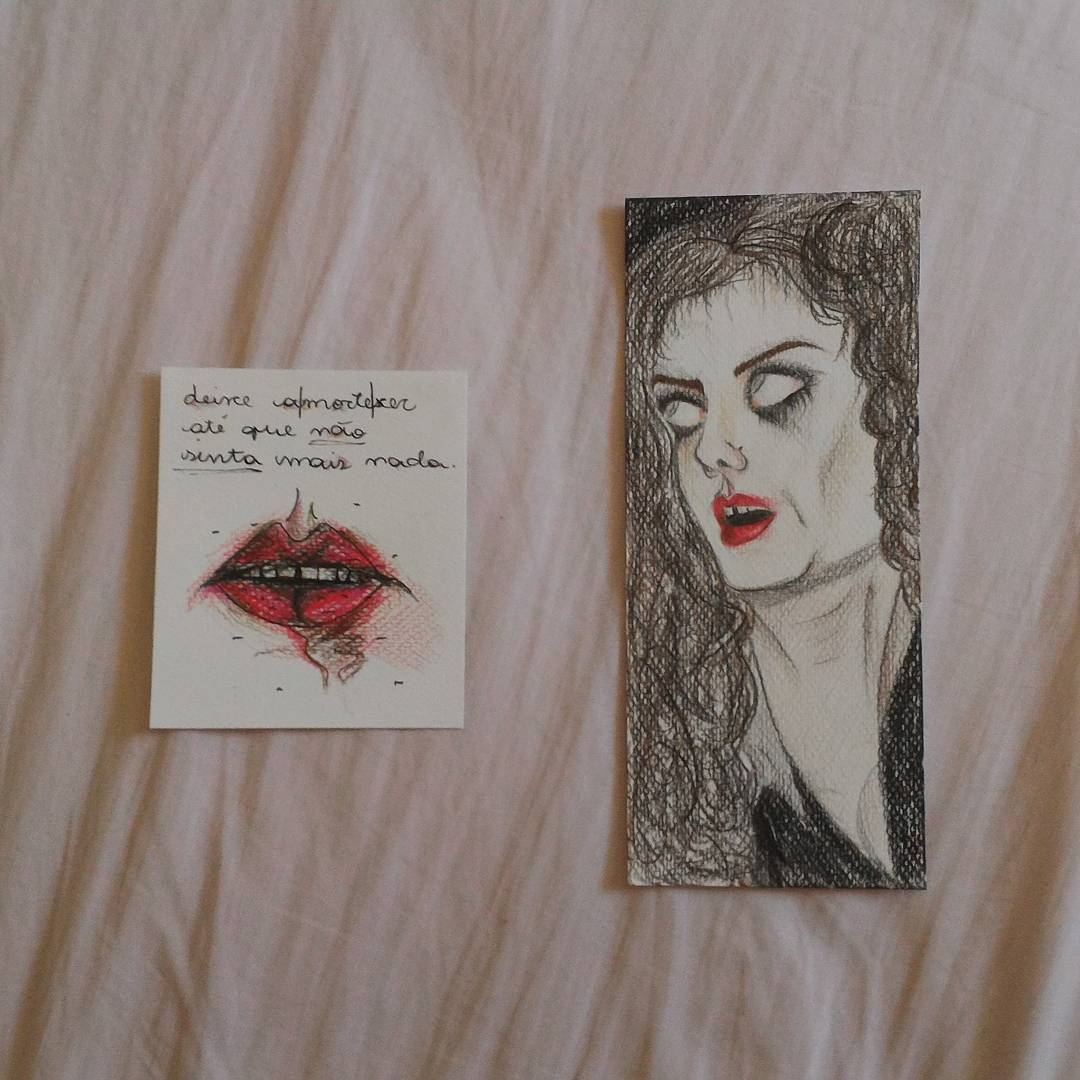 deixe amortecer
até que não
sinta mais nada.